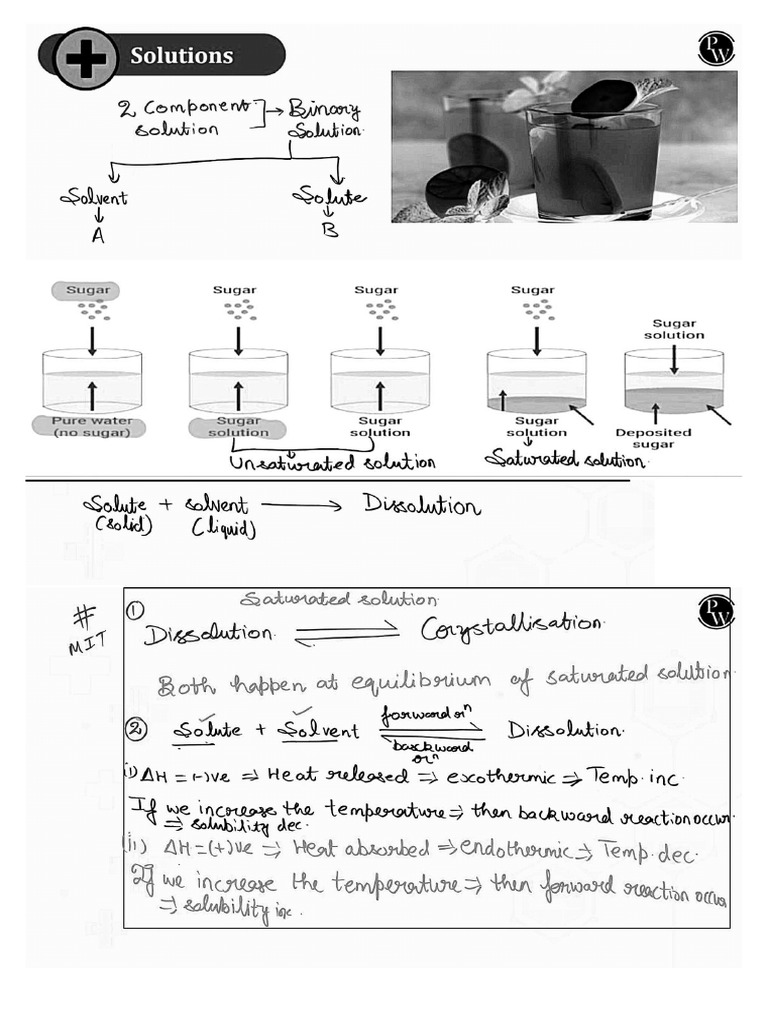 Solutions
PW
2 Component solution → Binary Solution
Solvent
Solute
A
B
Sugar
Sugar
Sugar
Sugar
Sugar solution
Pure water (no sugar)
Sugar solution
Sugar solution
Sugar solution
Deposited sugar
Unsaturated solution
Saturated solution
Solute + solvent → Dissolution
(solid) (liquid)
# MIT
PW
① Saturated solution
Dissolution ⇌ Corystallisation
Both happen at equilibrium of saturated solution
② Solute + Solvent ⇌ Dissolution
forward orⁿ
backward orⁿ
i) ΔH = (-)ve ⇒ Heat released ⇒ exothermic ⇒ Temp. inc.
If we increase the temperature ⇒ then backward reaction occur
⇒ solubility dec.
(ii) ΔH = (+)ve ⇒ Heat absorbed ⇒ endothermic ⇒ Temp. dec.
If we increase the temperature ⇒ then forward reaction occur
⇒ solubility inc.